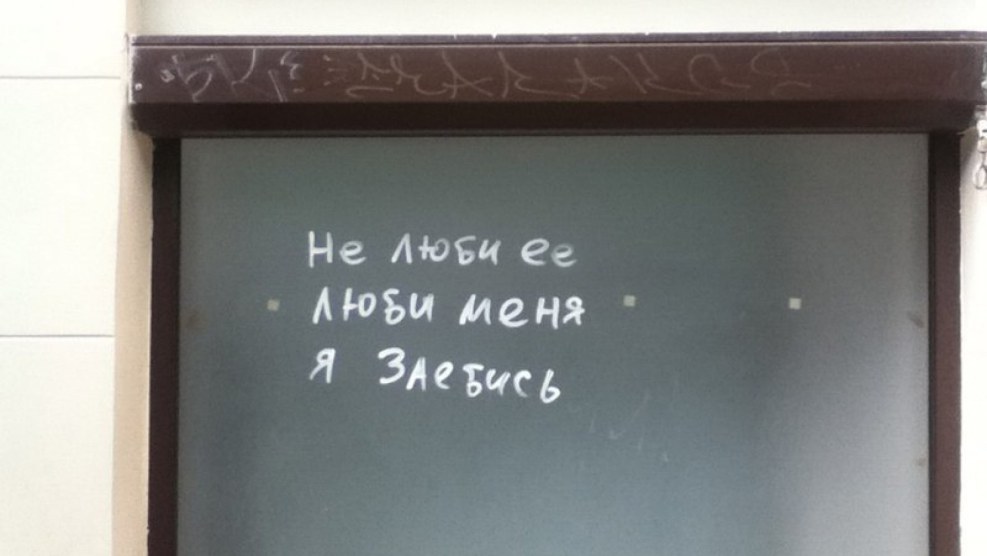 Не люби ее
люби меня
я заебись